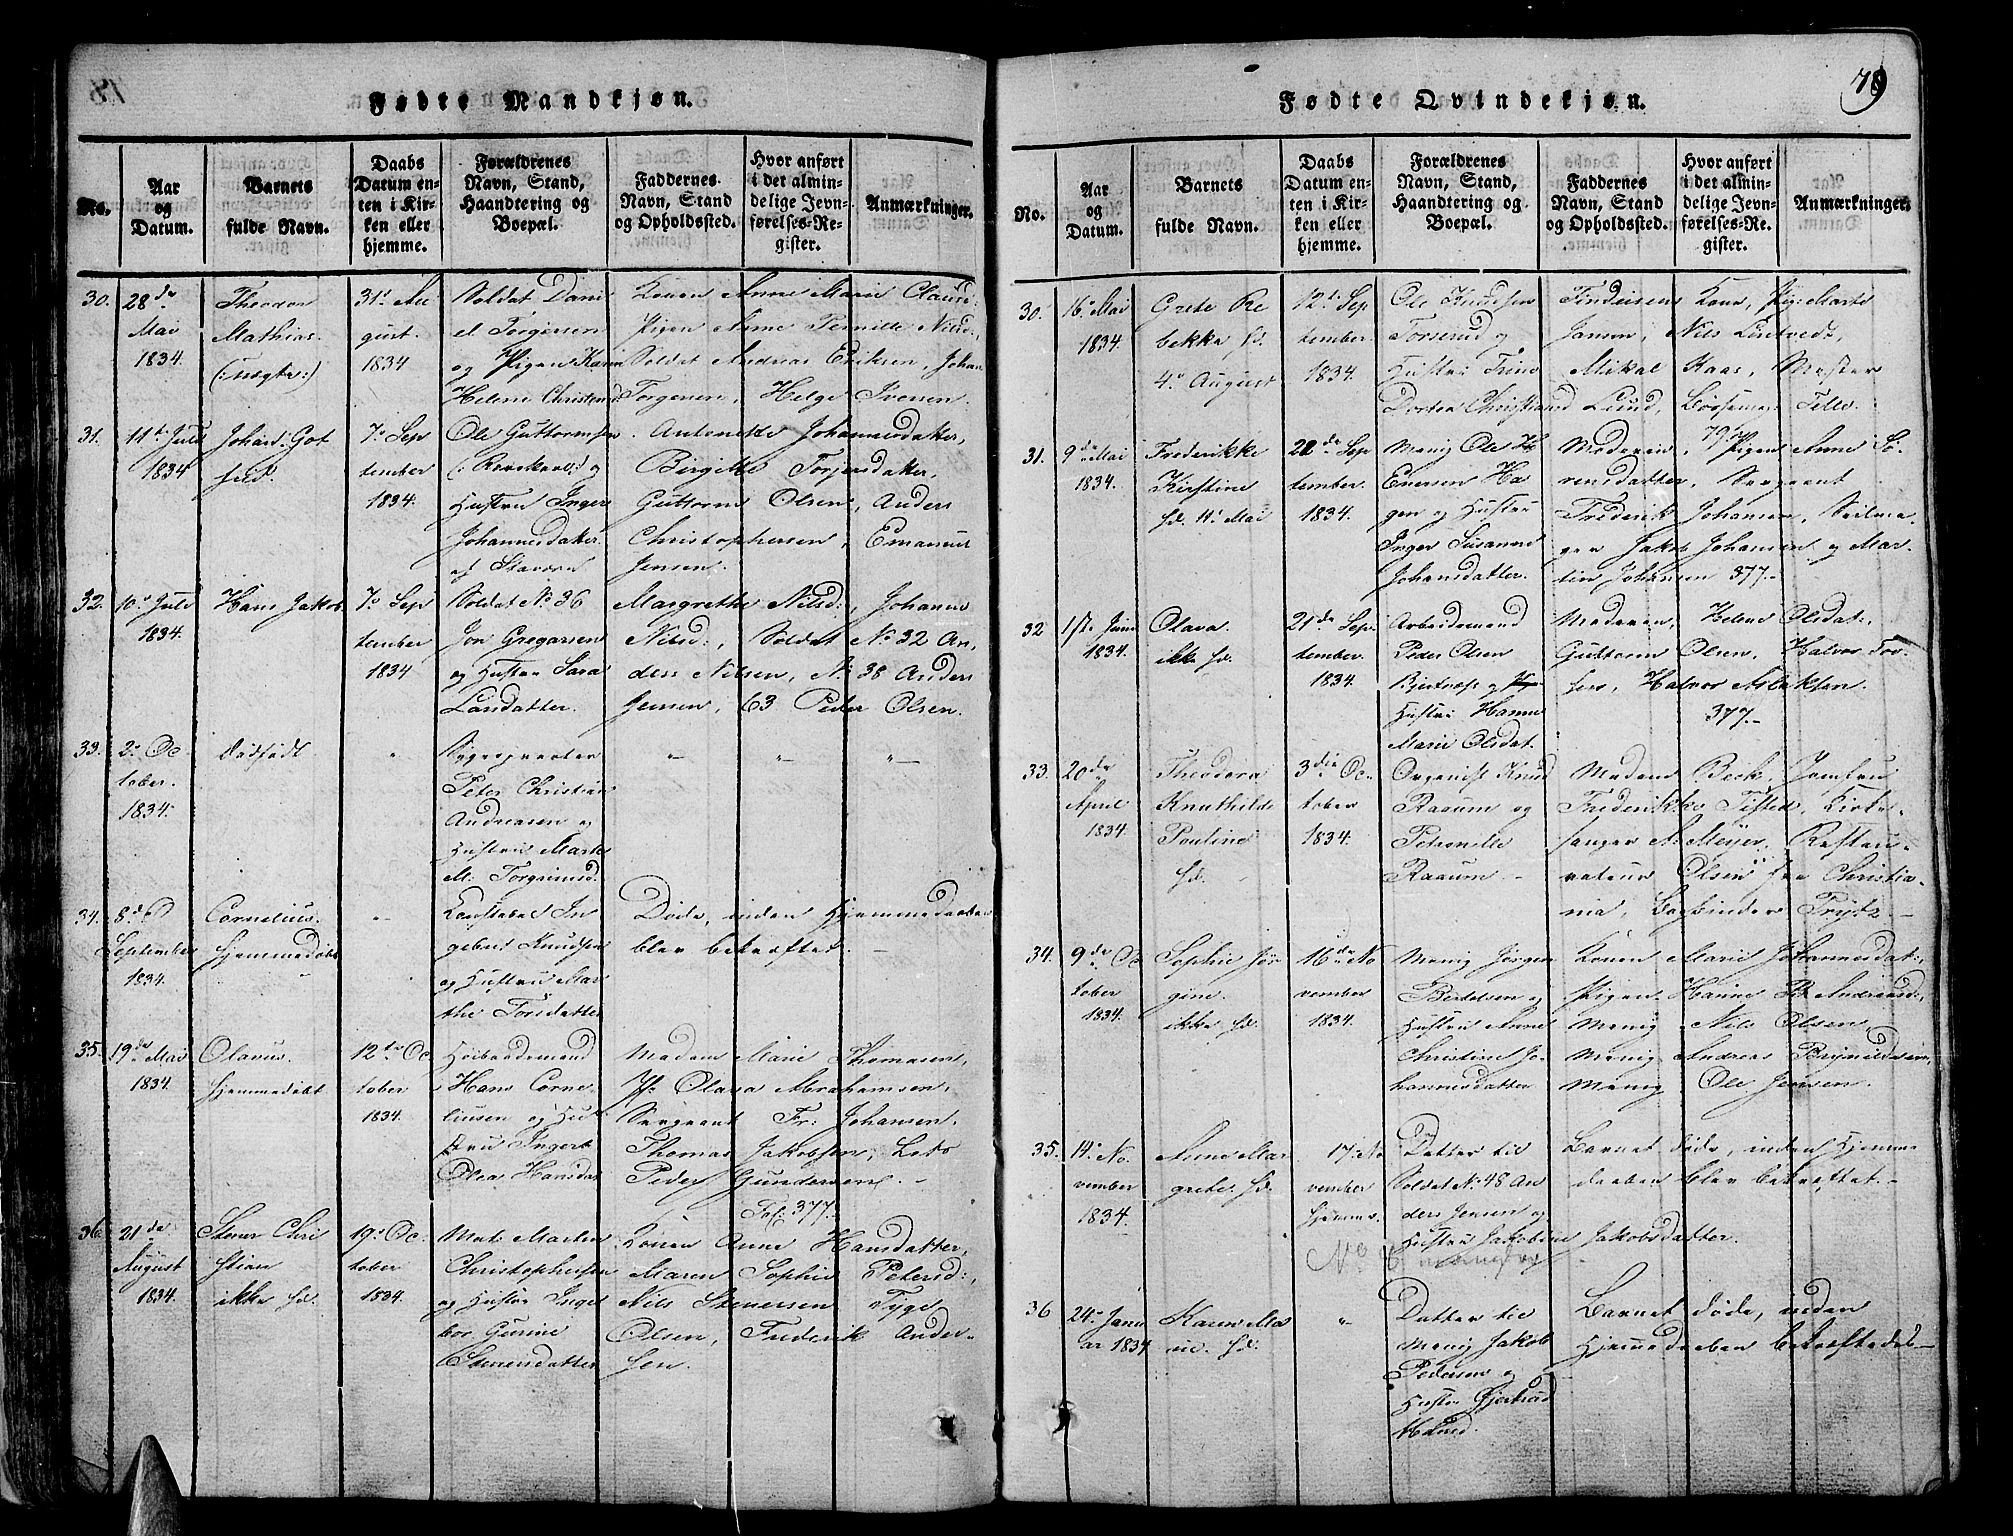 Fødte Mandkjøn.
No.
Aar
og
Datum.
Barnets
fulde Navn.
Daabs
Datum en-
ten i Kir-
ken eller
hjemme.
Forældrenes
Navn, Stand,
Haandtering og
Boepæl.
Faddernes
Navn, Stand
og Opholdssted.
Hvor anført
i det almin-
delige Jevn-
førelses-Re-
gister.
Anmærkninger.
30.
28de
Mai
1834.
Theodor
Mathias.
(:uægte:)
31t Au
gust.
1834
Soldat Dani
el Torgersen
og Pigen Karin
Helene Christensd
Konen Anne Marie Clausd:
Pigen Anne Pernille Nilsd:,
Soldat Andreas Eriksen, Johan
Torgersen, Helge Iversen.
31.
11t Juli
1834
Johan Got
fred.
7de Sep
tember
1834.
Ole Guttormsen
og
Hustru Inger
Johannesdatter
af Stavern
Antonette Johannesdatter,
Birgitte Torjersdatter,
Guttorm Olsen, Anders
Christophersen, Emanuel
Jensen.
32.
10de Juli
1834.
Hans Jakob
7de Sep
tember
1834
Soldat No 36
Jon Gregersen
og Hustru Sara
Larsdatter.
Margrethe Nilsd:, Johanne
Nilsd:, Soldat No 32 An,
ders Nilsen, No 38 Anders
Jensen, 63 Peder Olsen.
33.
2de Oc
tober.
1834.
Dødfødt
"
Peter Christian
Andreasen og
Hustru Marte
M: Torgrimsd.
"
"
"
34.
8de
September
1834.
Cornelius.
Hjemmedøbt
"
Constabel In
gebret Knudsen
og Hustru Mar
the Torsdatter
Døde, inden Hjemmedaaben
blev bekræftet.
35.
19de Mai
1834.
Olavus.
hjemmedøbt
12te Oc
tober
1834.
Hans Corne
liusen og Hu
stru Ingert
Olea Hansdat
Madam Marie Thomasen,
Jf: Olava Abrahamsen,
Sergeant Fr: Johansen.
Thomas Jakobsen, Lots
Peder Gundersen.
Fol: 377.
36.
21de
August
1834.
Stener Chri
stian
ikke hd.
19de Oc
tober
1834.
Mat: Morten
Christophersen
og Hustru Ingel
bor Gurine
Stenersdatter
Konen Anne Hansdatter,
Maren Sophie Petersd:,
Nils Stenersen Tyge
Olsen, Frederik Ander-
sen.
79
Fødte Qvindekjøn.
No.
Aar
og
Datum.
Barnets
fulde Navn.
Daabs
Datum en-
ten i Kir-
ken eller
hjemme.
Forældrenes
Navn, Stand,
Haandtering og
Boepæl.
Faddernes
Navn, Stand
og Opholdssted.
Hvor anført
i det almin-
delige Jevn-
førelses-Re-
gister.
Anmærkninger.
30.
16de Mai
1834.
Grete Re
bekka hd.
4de August
12te Sep
tember.
1834.
Ole Knudsen
Torserud og
Hustru Trine
Dortea Christiansd
Kone, Pig: Marte
Jansen, Nils Lindtvedt,
Mikal Kaas, Mester
Lund, Bøssemag: Telle.
31.
9de Mai
1834.
Frederikke
Kirstine
hd. 11t Mai
21de Sep
tember.
1834.
Menig Ole H
Enersen Ha
gen og Hustru
Inger Susanne
Johansdatter.
Moderen, Pigen Anne Sö
rensdatter, Sergeant
Frederik Johansen, Seilma
ger Jakob Johansen og Mar-
tin Johansen 377.-
32
17de Juni
1834.
Olava
ikke hd.
21de Sep
tember.
1834.
Arbeidsmand
Peder Olsen
og
Hustru Hanne
Marie Olsdat.
Moderen, Helene Olsdat:,
Guttorm Olsen, Halvor Tor
sen, Halvor Aslaksen.
377.-
33.
20de
April
1834.
Theodora
Knuthilde
Pouline
hd.
3die Oc-
tober
1834.
Organist Knud
Raaum og
Petronelle
Raaum -
Madam Beck, Jomfru
Frederikke Tisted, Kirke-
sanger A. Meyer, Restau-
rateur Olsen fra Christia-
nia, Bogbinder Trytz.-
34.
9de Oc
tober
1834.
Sophie Jør
gine.
ikke hd.
16de No
vember
1834.
Menig Jørgen
Bertelsen og
Hustru Anne
Christine Jo-
hannesdatter
Konen Marie Johannesdat:,
Pigen Hanne B. Andreasd:,
Menig Nils Olsen
Menig Andreas Brynildsen,
Menig Ole Jensen.
35.
14de No.
vember
1834.
Anne Mar
grete. hd.
17de No
vember
hjemme.
Datter til
Soldat No: 48 An
ders Jensen og
Hustru Jakobine Jakobsdatter.
Barnet døde, inden Hjemme
daaben blev bekræftet.-
36
24de Janu
ar 1834
Karen Ma
rie. hd.
"
Datter til
Menig Jakob
Pedersen og
Hustru Gjertrud
Barnet døde, inden
Hjemmedaaben bekræftedes